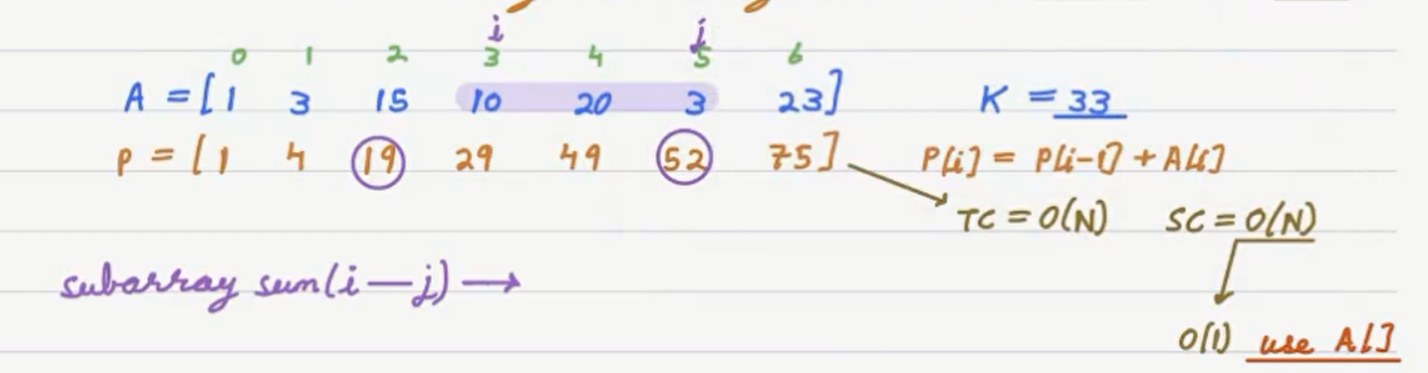 i j
0 1 2 3 4 5 6
A = [1 3 15 10 20 3 23] K = 33
P = [1 4 19 29 49 52 75] P[i] = P[i-1] + A[i]
TC = O(N) SC = O(N)
subarray sum(i-j) →
O(1) use A[]